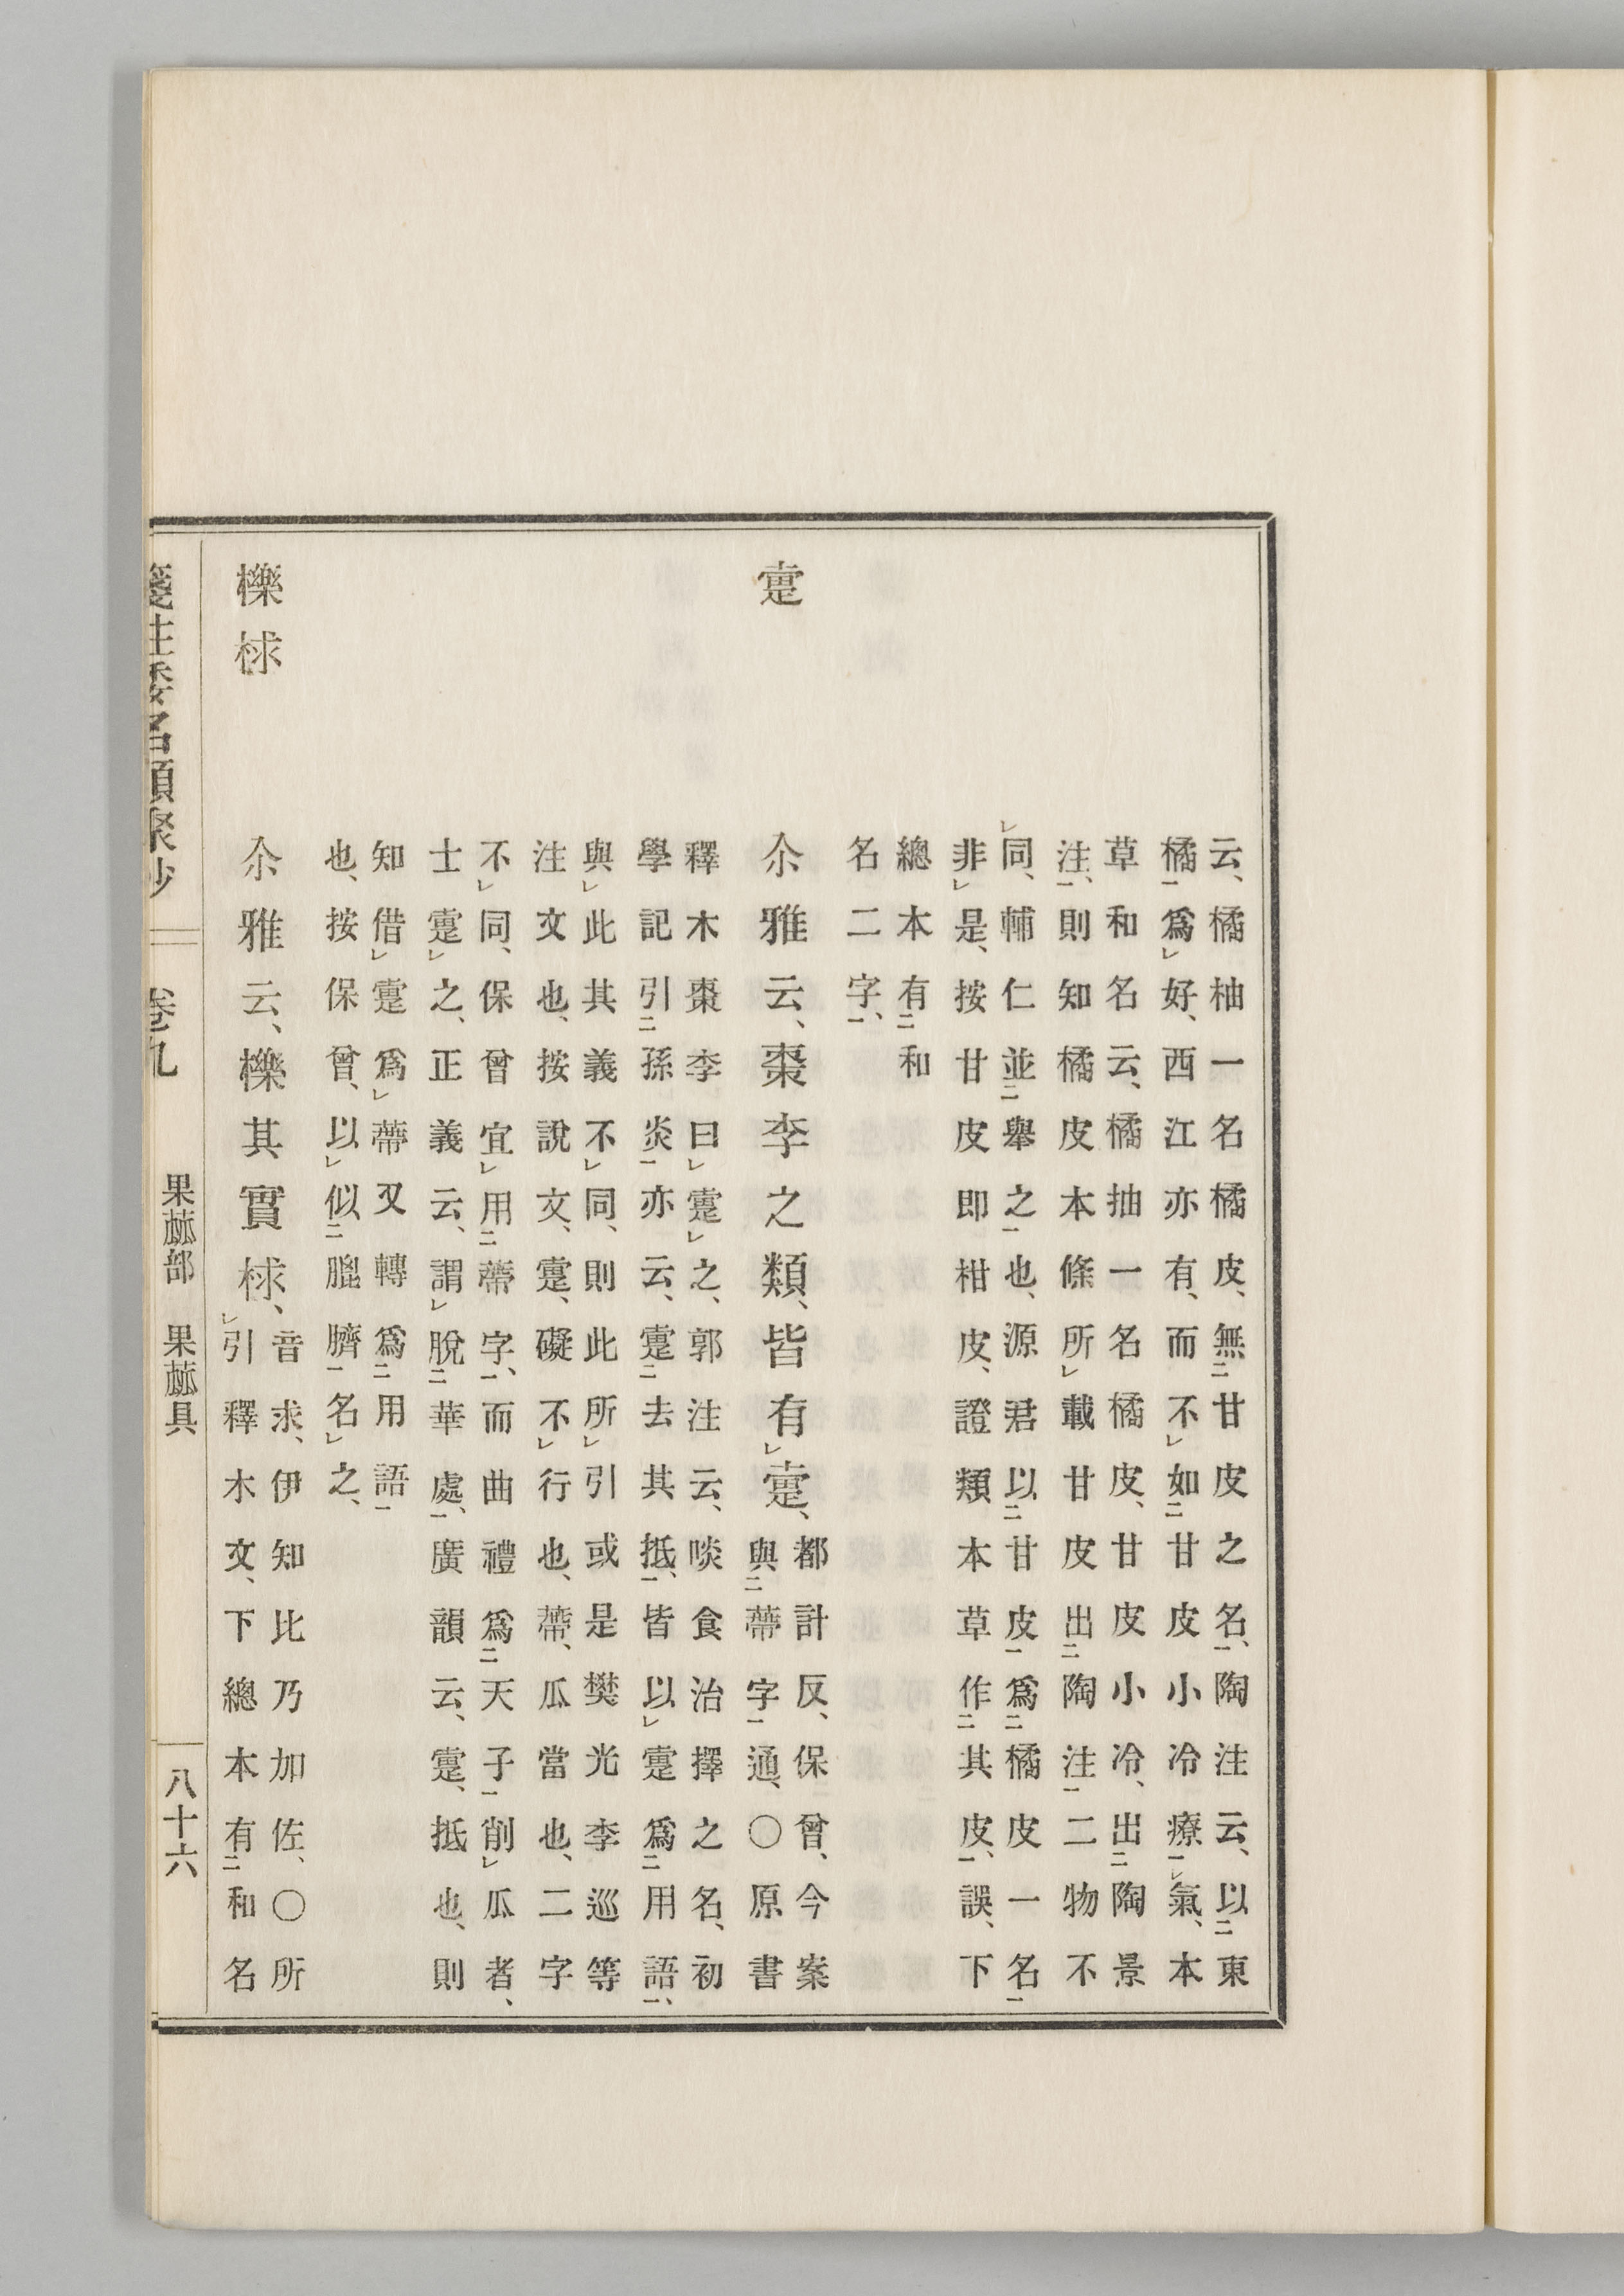 云、橘柚一名橘皮、無甘皮之名、陶注云、以東
橘爲好、西江亦有、而不如甘皮小冷療氣、本
草和名云、橘抽一名橘皮、甘皮小冷、出陶景
注、則知橘皮本條所載甘皮出陶注二物不
同、輔仁並舉之也、源君以甘皮爲橘皮一名
非是、按甘皮即柑皮、證類本草作其皮、誤、下
總本有和
名二字、
疐
尒雅云、棗李之類、皆有疐、
都計反、保曾、今案
與蔕字通、〇原書
釋木棗李曰疐之、郭注云、啖食治擇之名、初
學記引孫炎亦云、疐去其抵、皆以疐爲用語、
與此其義不同、則此所引或是樊光李巡等
注文也、按說文、疐、礙不行也、蔕、瓜當也、二字
不同、保曾宜用蔕字、而曲禮爲天子削瓜者、
士疐之、正義云、謂脫華處、廣韻云、疐、抵也、則
知借疐爲蔕又轉爲用語
也、按保曾、以似膍臍名之、
櫟梂
尒雅云、櫟其實梂、
音求、伊知比乃加佐、〇所
引釋木文、下總本有和名
箋注倭名類聚抄 卷九 果蓏部 果蓏具 八十六